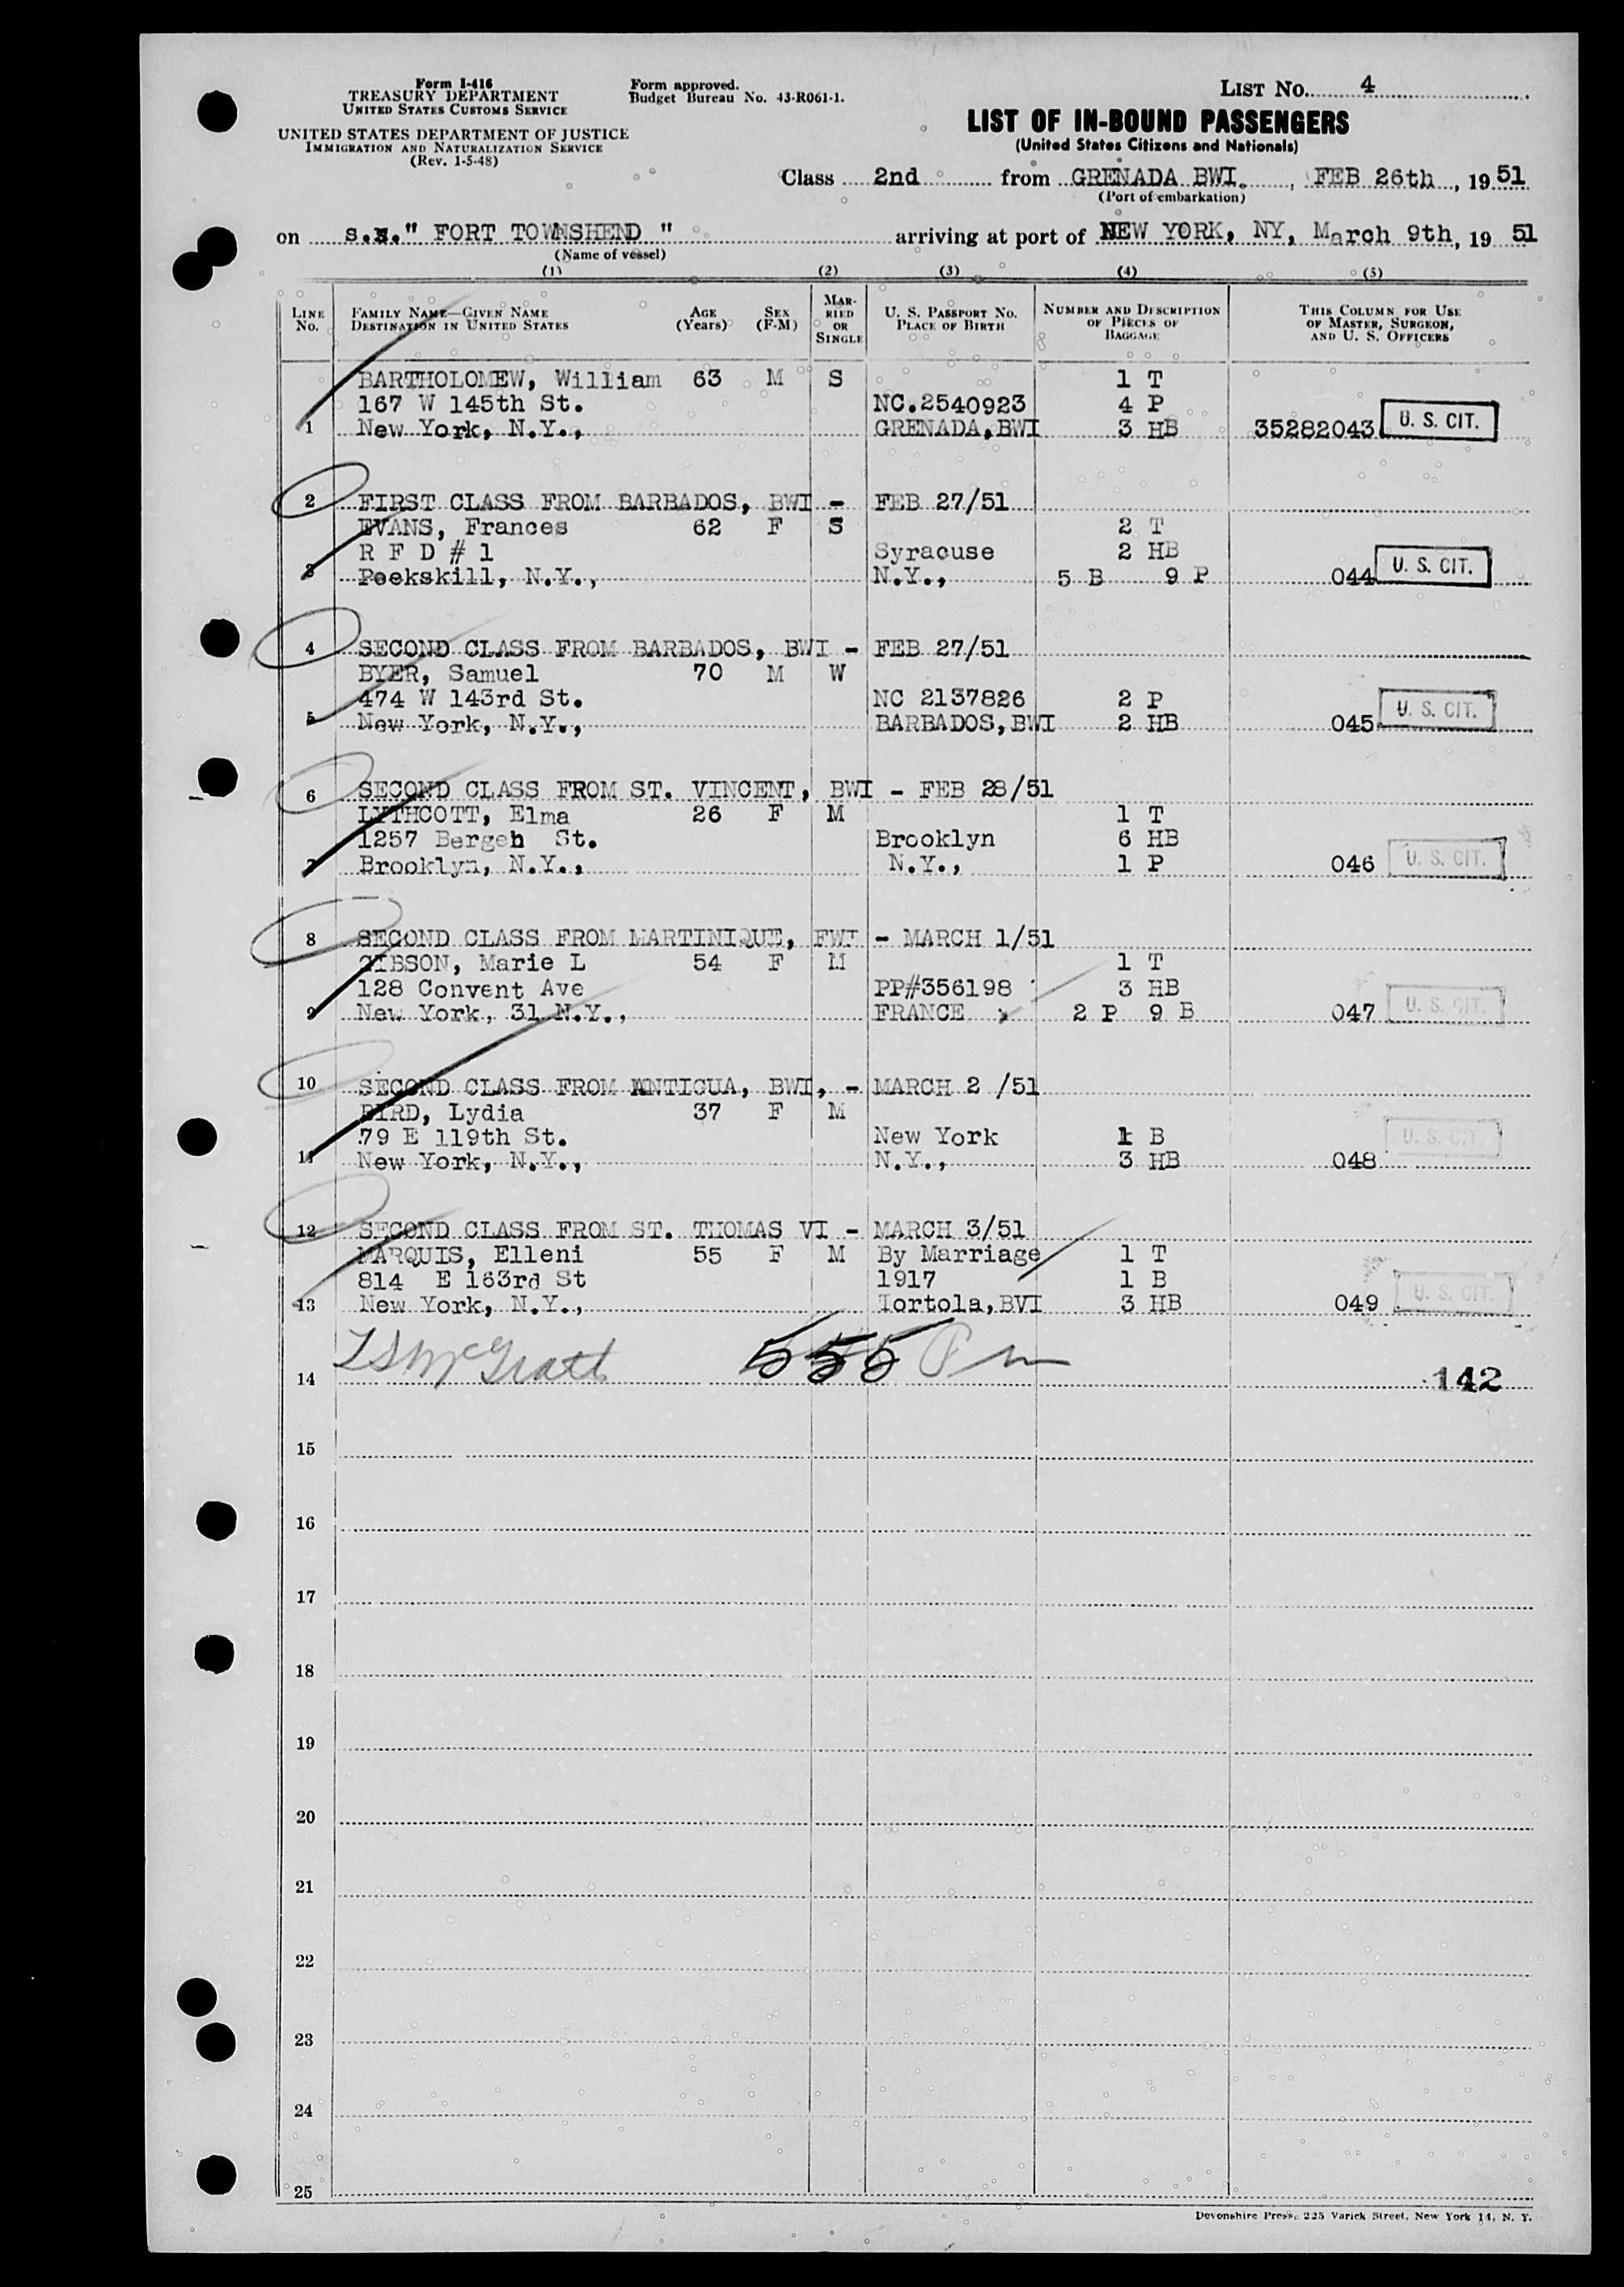 Form I-416
TREASURY DEPARTMENT
UNITED STATES CUSTOMS SERVICE
UNITED STATES DEPARTMENT OF JUSTICE
IMMIGRATION AND NATURALIZATION SERVICE
(Rev. 1-5-48)
Form approved.
Budget Bureau No. 43-R061-1.
LIST No. 4
LIST OF IN-BOUND PASSENGERS
(United States Citizens and Nationals)
Class 2nd from GRENADA BWI. , FEB 26th , 1951
(Port of embarkation)
on s.s." FORT TOWNSHEND " arriving at port of NEW YORK, NY, March 9th, 19 51
(Name of vessel)
(1) (2) (3) (4) (5)
LINE No. FAMILY NAME—GIVEN NAME DESTINATION IN UNITED STATES AGE (Years) SEX (F-M) MARRIED OR SINGLE U. S. PASSPORT No. PLACE OF BIRTH NUMBER AND DESCRIPTION OF PIECES OF BAGGAGE THIS COLUMN FOR USE OF MASTER, SURGEON, AND U. S. OFFICERS
BARTHOLOMEW, William 63 M S 1 T
167 W 145th St. NC.2540923 4 P
1 New York, N.Y., GRENADA,BWI 3 HB 35282043 U. S. CIT.
2 FIRST CLASS FROM BARBADOS, BWI - FEB 27/51
EVANS, Frances 62 F S 2 T
R F D # 1 Syracuse 2 HB
3 Peekskill, N.Y., N.Y., 5 B 9 P 044 U. S. CIT.
4 SECOND CLASS FROM BARBADOS, BWI - FEB 27/51
BYER, Samuel 70 M W
474 W 143rd St. NC 2137826 2 P
5 New York, N.Y., BARBADOS,BWI 2 HB 045 U. S. CIT.
6 SECOND CLASS FROM ST. VINCENT, BWI - FEB 28/51
LYTHCOTT, Elma 26 F M 1 T
1257 Bergen St. Brooklyn 6 HB
7 Brooklyn, N.Y., N.Y., 1 P 046 U. S. CIT.
8 SECOND CLASS FROM MARTINIQUE, FWI - MARCH 1/51
GIBSON, Marie L 54 F M 1 T
128 Convent Ave PP#356198 3 HB
9 New York, 31 N.Y., FRANCE 2 P 9 B 047 U. S. CIT.
10 SECOND CLASS FROM ANTIGUA, BWI, - MARCH 2 /51
BIRD, Lydia 37 F M
79 E 119th St. New York 1 B
11 New York, N.Y., N.Y., 3 HB 048 U. S. CIT.
12 SECOND CLASS FROM ST. THOMAS VI - MARCH 3/51
MARQUIS, Elleni 55 F M By Marriage 1 T
814 E 163rd St 1917 1 B
13 New York, N.Y., Tortola,BVI 3 HB 049 U. S. CIT.
14 McGrath 555 Pm 142
15
16
17
18
19
20
21
22
23
24
25
Devonshire Press, 225 Varick Street, New York 14, N. Y.